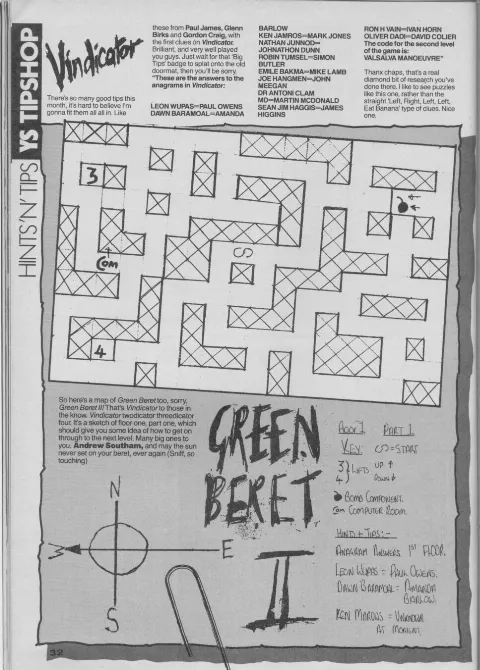 YS TIPSHOP
HINTS'N'TIPS
Vindicator
There's so many good tips this
month, it's hard to believe I'm
gonna fit them all all in. Like
these from Paul James, Glenn
Birks and Gordon Craig, with
the first clues on Vindicator.
Brilliant, and very well received
you guys. Just wait for that 'Big
Tips' badge to splat onto the old
doormat, then you'll be sorry.
"These are the answers to the
anagrams in Vindicator:
LEON WUPAS=PAUL OWENS
DAWN BARAMOAL=AMANDA
BARLOW
KEN JAMROS=MARK JONES
NATHAN JUNNOD=
JOHNATHON DUNN
ROBIN TUMSEL=SIMON
BUTLER
EMILE BAKMA=MIKE LAMB
JOE HANGMEN=JOHN
MEEGAN
DR ANTONI CLAM
MD=MARTIN MCDONALD
SEAN JIM HAGGIS=JAMES
HIGGINS
RON H VAIN=IVAN HORN
OLIVER DADI=DAVID COLIER
The code for the second level
of the game is:
VALSALVA MANOEUVRE"
Thanx chaps, that's a real
diamond bit of research you've
done there. I like to see puzzles
like this one, rather than the
straight 'Left, Right, Left, Left,
Eat Banana' type of clues. Nice
one.
3
Com
S
4
So here's a map of Green Beret too, sorry,
Green Beret II! That's Vindicator to those in
the know. Vindicator twodicator threedicator
four. It's a sketch of floor one, part one, which
should give you some idea of how to get on
through to the next level. Many big ones to
you, Andrew Southam, and may the sun
never set on your beret, ever again (Sniff, so
touching)
GREEN
BERET
II
N
W
E
S
FLOOR 1 PART 1
KEY S=START
3 } LIFTS UP ↑
4 DOWN ↓
BOMB COMPONENT.
Com COMPUTER ROOM.
HINTS + TIPS:-
ANAGRAM ANSWERS 1ST FLOOR.
LEON WUPAS = PAUL OWENS.
DAWN BARAMOAL = AMANDA
BARLOW.
KEN MAROJS = UNKNOWN
AT MOMENT.
32